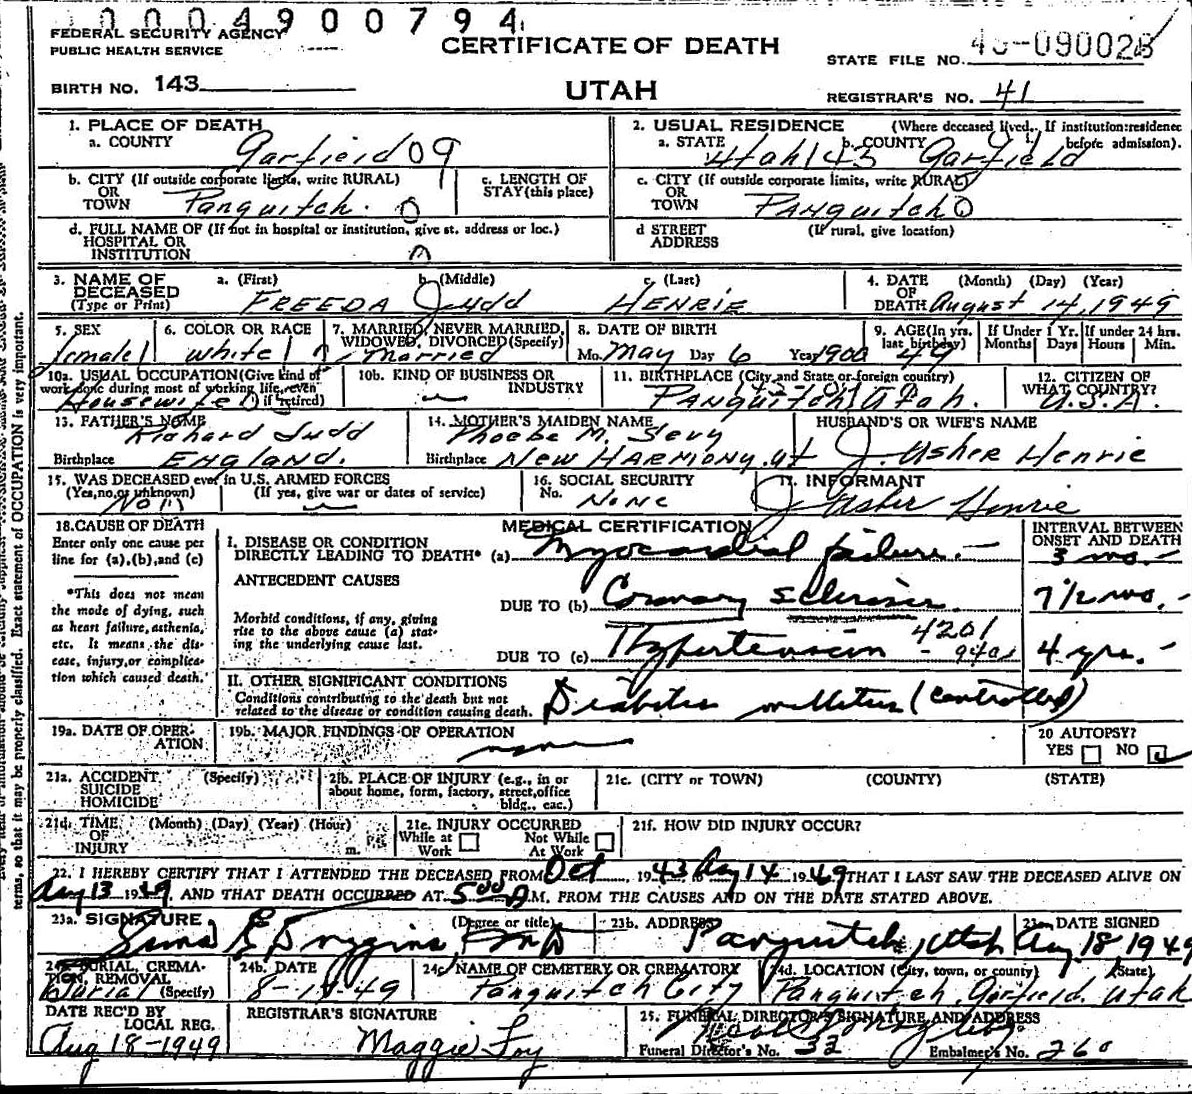 0004900794
FEDERAL SECURITY AGENCY
PUBLIC HEALTH SERVICE
CERTIFICATE OF DEATH
STATE FILE NO.
BIRTH NO. 143
UTAH
REGISTRAR'S NO. 41
1. PLACE OF DEATH
a. COUNTY Garfield 09
2. USUAL RESIDENCE (Where deceased lived. If institution: residence before admission).
a. STATE Utah 143 b. COUNTY Garfield
b. CITY (If outside corporate limits, write RURAL) OR TOWN Panguitch. 0
c. LENGTH OF STAY (this place)
c. CITY (If outside corporate limits, write RURAL) OR TOWN PANguitch 0
d. FULL NAME OF (If not in hospital or institution, give st. address or loc.) HOSPITAL OR INSTITUTION
d STREET ADDRESS (If rural, give location)
3. NAME OF DECEASED (Type or Print) a. (First) FREEDA b. (Middle) Judd c. (Last) HENRIE
4. DATE OF DEATH (Month) (Day) (Year) August 14, 1949
5. SEX female 1
6. COLOR OR RACE white 1
7. MARRIED, NEVER MARRIED, WIDOWED, DIVORCED (Specify) Married
8. DATE OF BIRTH Mo. May Day 6 Year 1900
9. AGE (In yrs. last birthday) 49 If Under 1 Yr. Months Days If under 24 hrs. Hours Min.
10a. USUAL OCCUPATION (Give kind of work done during most of working life, even if retired) Housewife
10b. KIND OF BUSINESS OR INDUSTRY
11. BIRTHPLACE (City and State or foreign country) PANguitch, Utah.
12. CITIZEN OF WHAT COUNTRY? U.S.A.
13. FATHER'S NAME Richard Judd
Birthplace ENGLAND.
14. MOTHER'S MAIDEN NAME Phoebe M. Sevy
Birthplace NEW HARMONY, ut
HUSBAND'S OR WIFE'S NAME J. Usher Henrie
15. WAS DECEASED ever in U.S. ARMED FORCES (Yes, no, or unknown) (If yes, give war or dates of service) No
16. SOCIAL SECURITY No. None
17. INFORMANT J Usher Henrie
18. CAUSE OF DEATH
Enter only one cause per line for (a), (b), and (c)
*This does not mean the mode of dying, such as heart failure, asthenia, etc. It means the disease, injury, or complication which caused death.
MEDICAL CERTIFICATION
INTERVAL BETWEEN ONSET AND DEATH
I. DISEASE OR CONDITION DIRECTLY LEADING TO DEATH* (a) Myocardial failure. 3 mo.
ANTECEDENT CAUSES
Morbid conditions, if any, giving rise to the above cause (a) stating the underlying cause last.
DUE TO (b) Coronary sclerosis. 7 1/2 mo.
DUE TO (c) Hypertension 4201 4 yrs.
II. OTHER SIGNIFICANT CONDITIONS
Conditions contributing to the death but not related to the disease or condition causing death. Diabetes mellitus (controlled)
19a. DATE OF OPERATION
19b. MAJOR FINDINGS OF OPERATION none
20 AUTOPSY? YES NO
21a. ACCIDENT SUICIDE HOMICIDE (Specify)
21b. PLACE OF INJURY (e.g., in or about home, form, factory, street, office bldg., eac.)
21c. (CITY or TOWN) (COUNTY) (STATE)
21d. TIME OF INJURY (Month) (Day) (Year) (Hour) m.
21e. INJURY OCCURRED While at Work Not While At Work
21f. HOW DID INJURY OCCUR?
22. I HEREBY CERTIFY THAT I ATTENDED THE DECEASED FROM Oct 1943, Aug 14 1949 THAT I LAST SAW THE DECEASED ALIVE ON
Aug 13 1949 AND THAT DEATH OCCURRED AT 5:00 A M. FROM THE CAUSES AND ON THE DATE STATED ABOVE.
23a. SIGNATURE (Degree or title)
23b. ADDRESS Panguitch, Utah
DATE SIGNED Aug 18 1949
24a. BURIAL, CREMATION, REMOVAL (Specify) Burial
24b. DATE
24c. NAME OF CEMETERY OR CREMATORY Panguitch City
24d. LOCATION (City, town, or county) (State) Panguitch, Garfield. Utah
DATE REC'D BY LOCAL REG. Aug 18-1949
REGISTRAR'S SIGNATURE Maggie Foy
25. FUNERAL DIRECTOR'S SIGNATURE AND ADDRESS
Funeral Director's No. 32 Embalmer's No. 260
terms, so that it may be properly classified. Exact statement of OCCUPATION is very important.